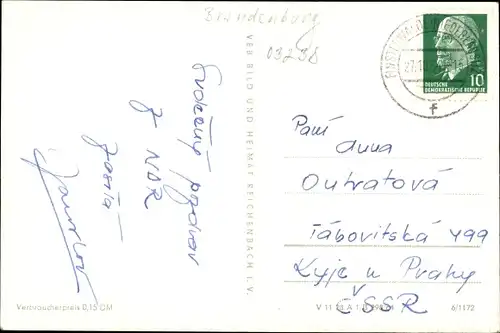 Brandenburg
03238
10
DEUTSCHE
DEMOKRATISCHE REPUBLIK
f
VEB BILD UND HEIMAT REICHENBACH I. V.
Srdečný pozdrav
z NDR
zasílá
Paní
Anna
Outratová
Tábovitská 499
Kyje u Prahy
ČSSR
Verbraucherpreis 0,15 DM
V 11 28 A 1
6/1172